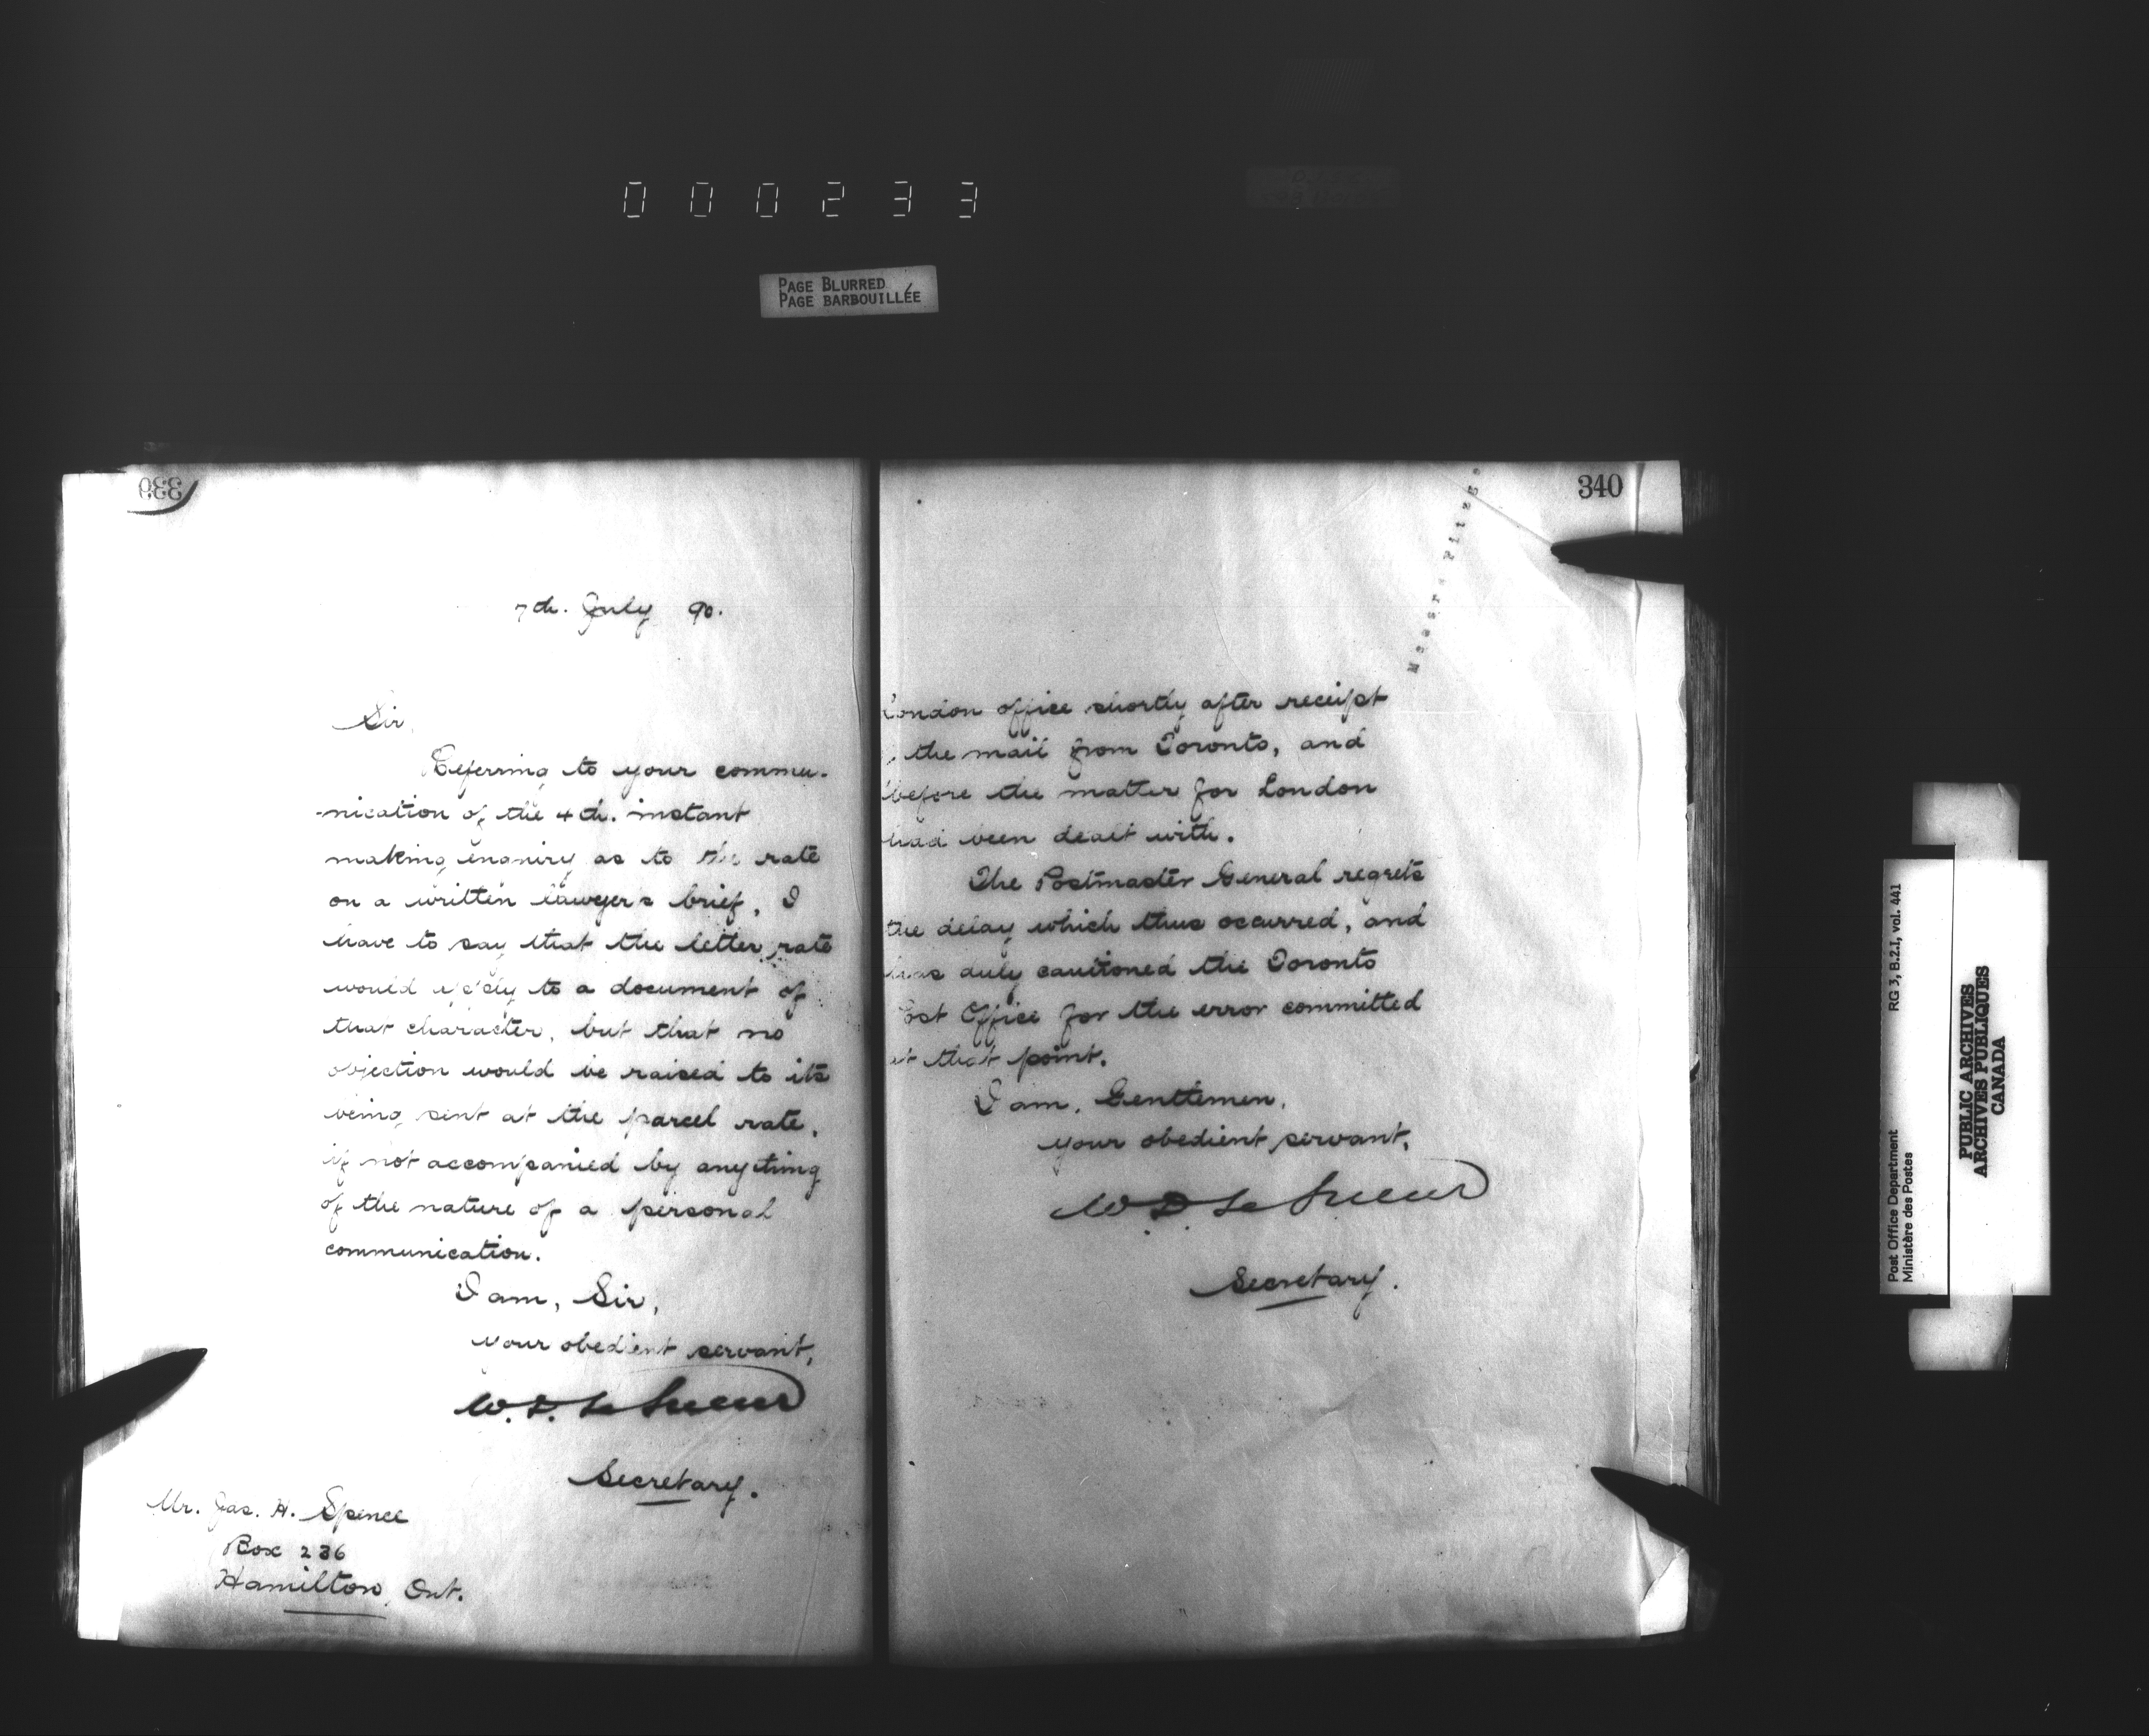 000233
PAGE BLURRED
PAGE BARBOUILLÉE
339
7th. July 90.
Sir,
Referring to your commu-
-nication of the 4th. instant
making enquiry as to the rate
on a written lawyer's brief, I
have to say that the letter rate
would apply to a document of
that character, but that no
objection would be raised to its
being sent at the parcel rate,
if not accompanied by anything
of the nature of a personal
communication.
I am, Sir,
your obedient servant,
W. D. Le Sueur
Secretary.
Mr. Jas. H. Spence
Box 236
Hamilton, Ont.
340
London office shortly after receipt
the mail from Toronto, and
before the matter for London
had been dealt with.
The Postmaster General regrets
the delay which thus occurred, and
has duly cautioned the Toronto
Post Office for the error committed
at that point.
I am, Gentlemen,
your obedient servant,
W D Le Sueur
Secretary.
Messrs
Post Office Department
Ministère des Postes
RG 3, B.2.I, vol. 441
PUBLIC ARCHIVES
ARCHIVES PUBLIQUES
CANADA